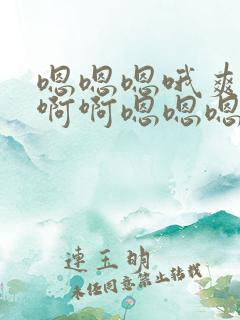 嗯嗯嗯哦爽
啊啊嗯嗯嗯
連玉明
未经同意禁止转载